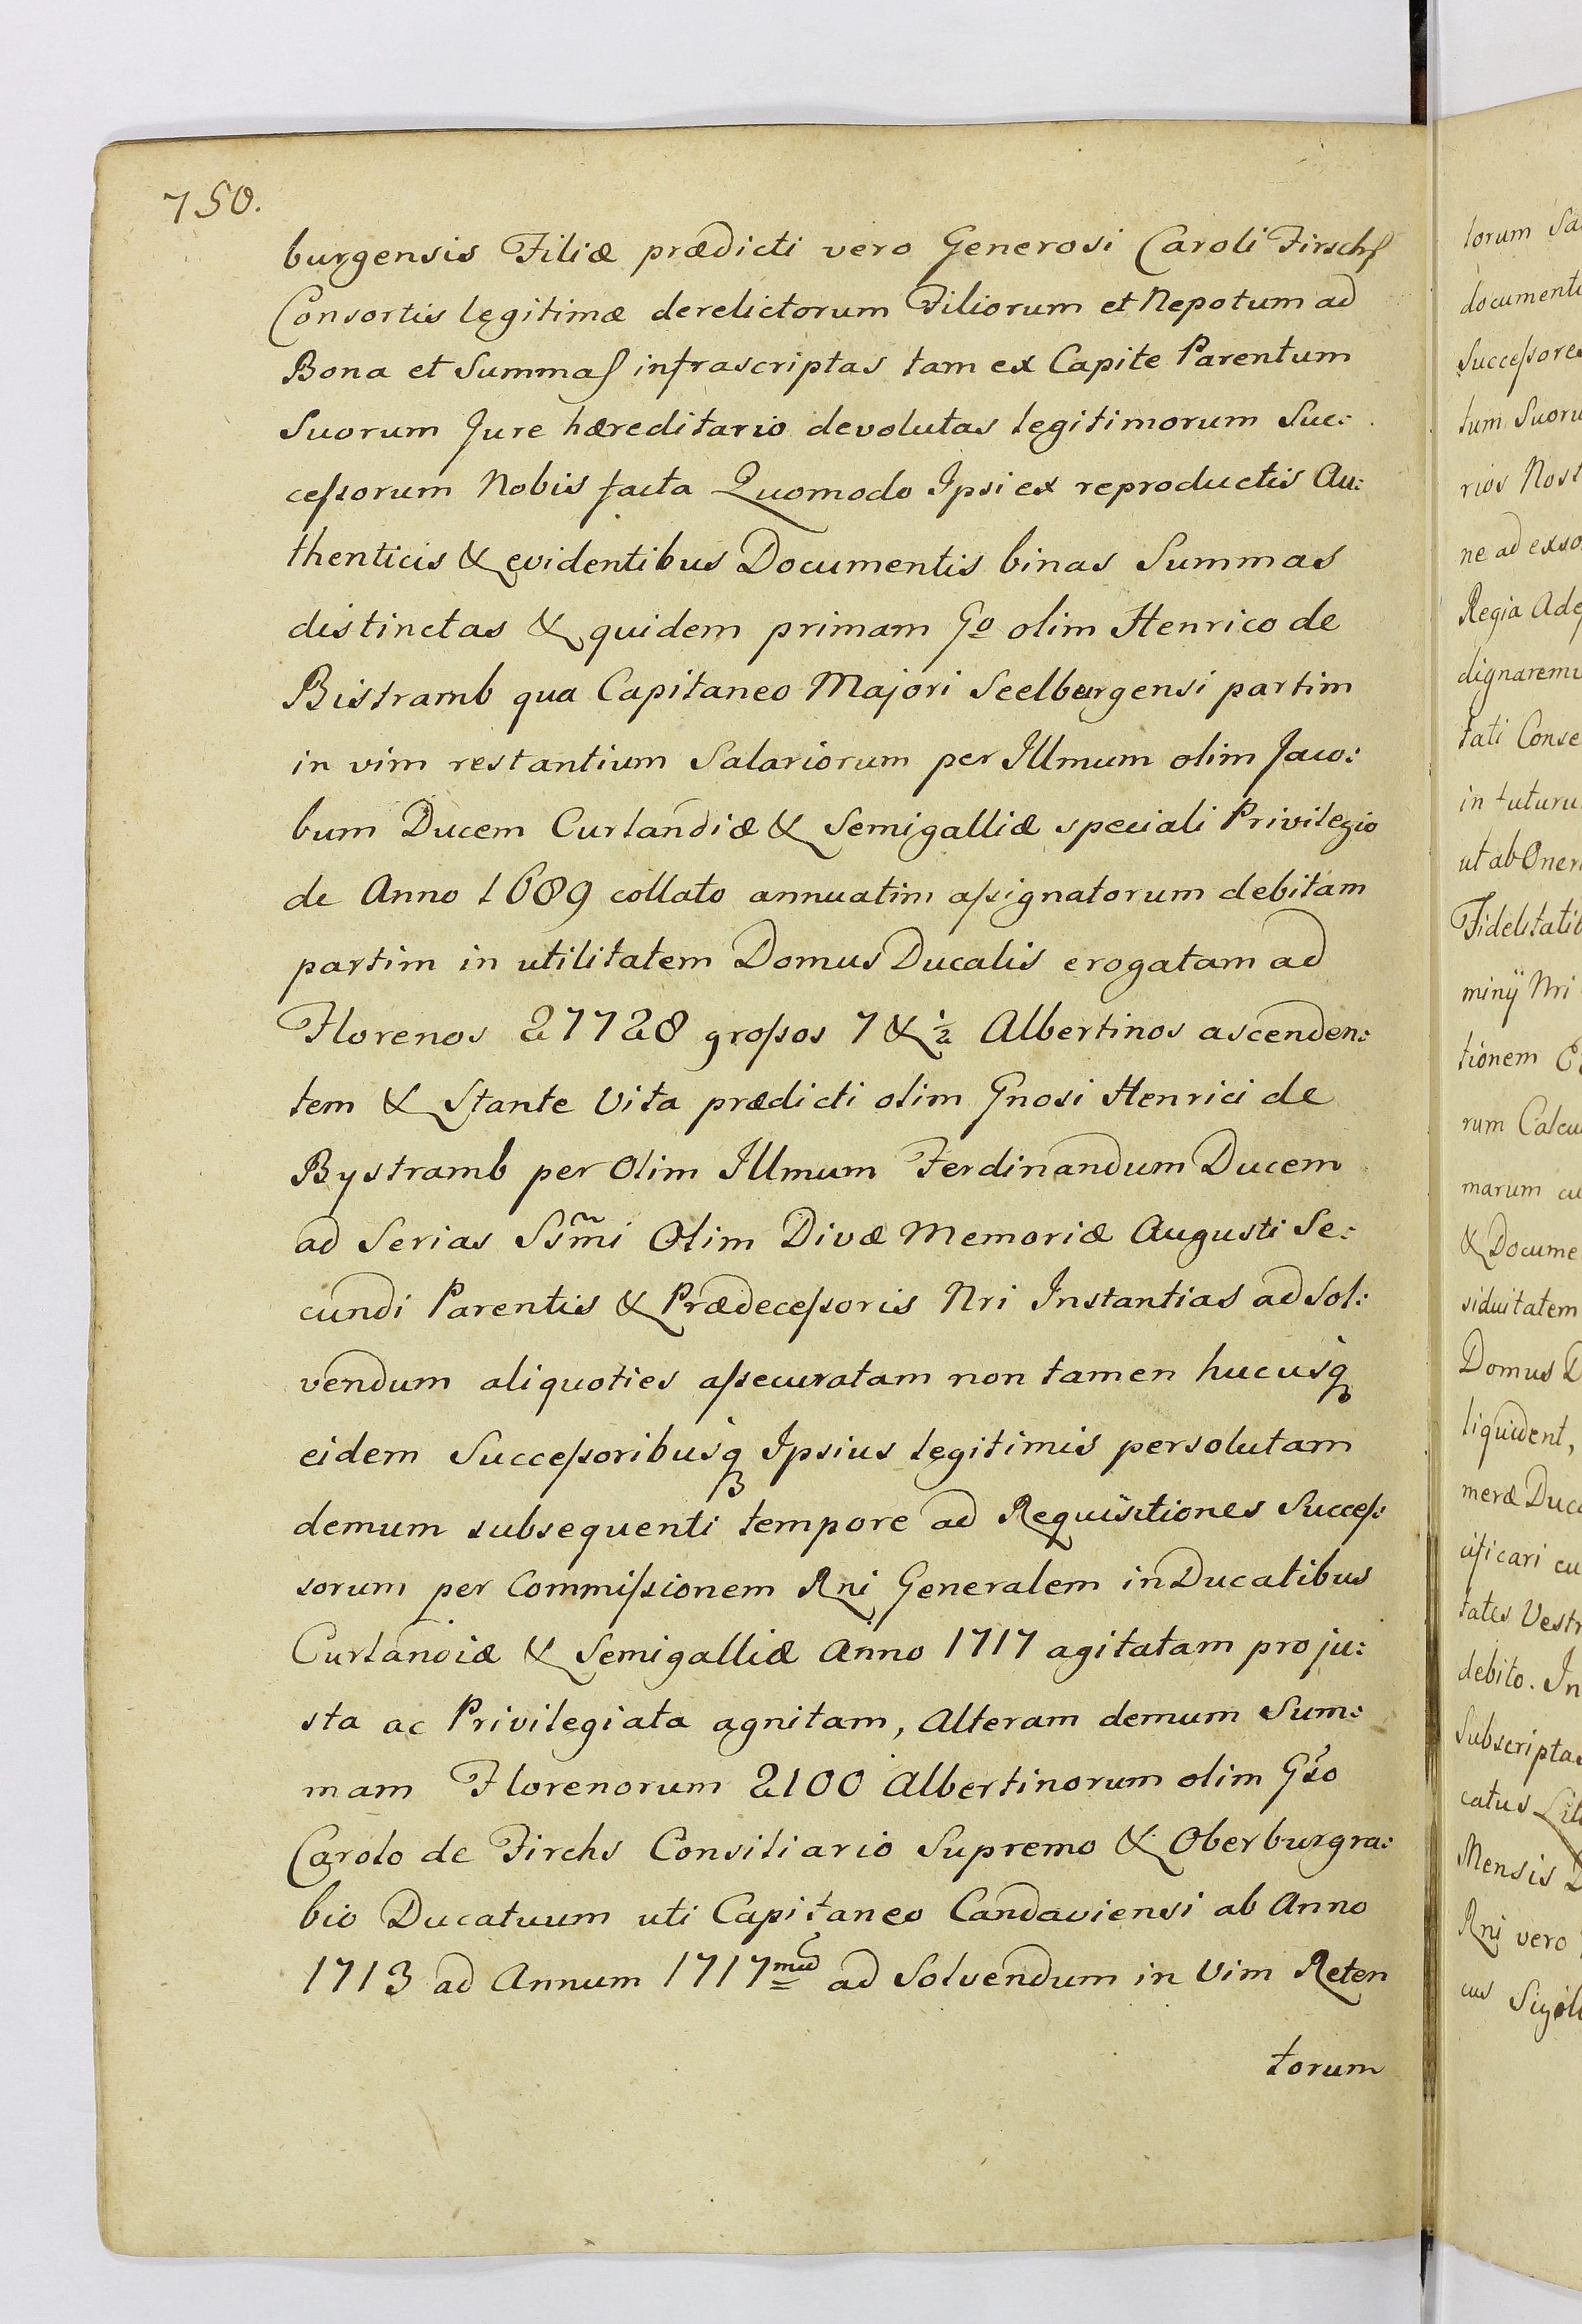 750.
burgensis Filiæ prædicti vero Generosi Caroli Firschs
Consortis legitimæ derelictorum Filiorum et Nepotum ad
Bona et Summas infrascriptas tam ex Capite Parentum
Suorum Jure hæreditario devolutas legitimorum Suc:
cessorum Nobis facta Quomodo Ipsi ex reproductis Au:
thenticis & evidentibus Documentis binas Summas
distinctas & quidem primam Go olim Henrico de
Bistramb qua Capitaneo Majori Seelburgensi partim
in vim restantium Salariorum per Illmum olim Jaco:
bum Ducem Curlandiæ & Semigalliæ speciali Privilegio
de Anno 1689 collato annuatim assignatorum debitam
partim in utilitatem Domus Ducalis erogatam ad
Florenos 27728 grossos 7 & ½ Albertinos ascenden:
tem & Stante Vita prædicti olim Gnosi Henrici de
Bystramb per Olim Illmum Ferdinandum Ducem
ad Serias Ssm̃i Olim Divæ Memoriæ Augusti Se:
cundi Parentis & Prædecessoris Nri Instantias ad Sol:
vendum aliquoties assecuratam non tamen hucusq
eidem Successoribusq Ipsius legitimis persolutam
demum subsequenti tempore ad Requisitiones Succes:
sorum per Commissionem Rni Generalem in Ducatibus
Curlandiæ & Semigalliæ Anno 1717 agitatam pro ju:
sta ac Privilegiata agnitam, Alteram demum Sum:
mam Florenorum 2100 Albertinorum olim Gso
Carolo de Firchs Consiliario Supremo & Oberburgra:
bio Ducatuum uti Capitaneo Candaviensi ab Anno
1713 ad Annum 1717mum ad Solvendum in Vim Reten
torum
torum Sa
documenti
Successores
tum Suoru
rios Nost
ne ad exso
Regia Ade
dignaremu
tati Conse
in futuru
ut ab Oner
Fidelitatib
minÿ Nri
tionem
rum Calcu
marum
& Docume
siduitatem
Domus D
liquident,
meræ Duca
cificari cu
tates Vestr
debito. In
Subscripta
catus Lit
Mensis D
Rni vero
cus Sigill